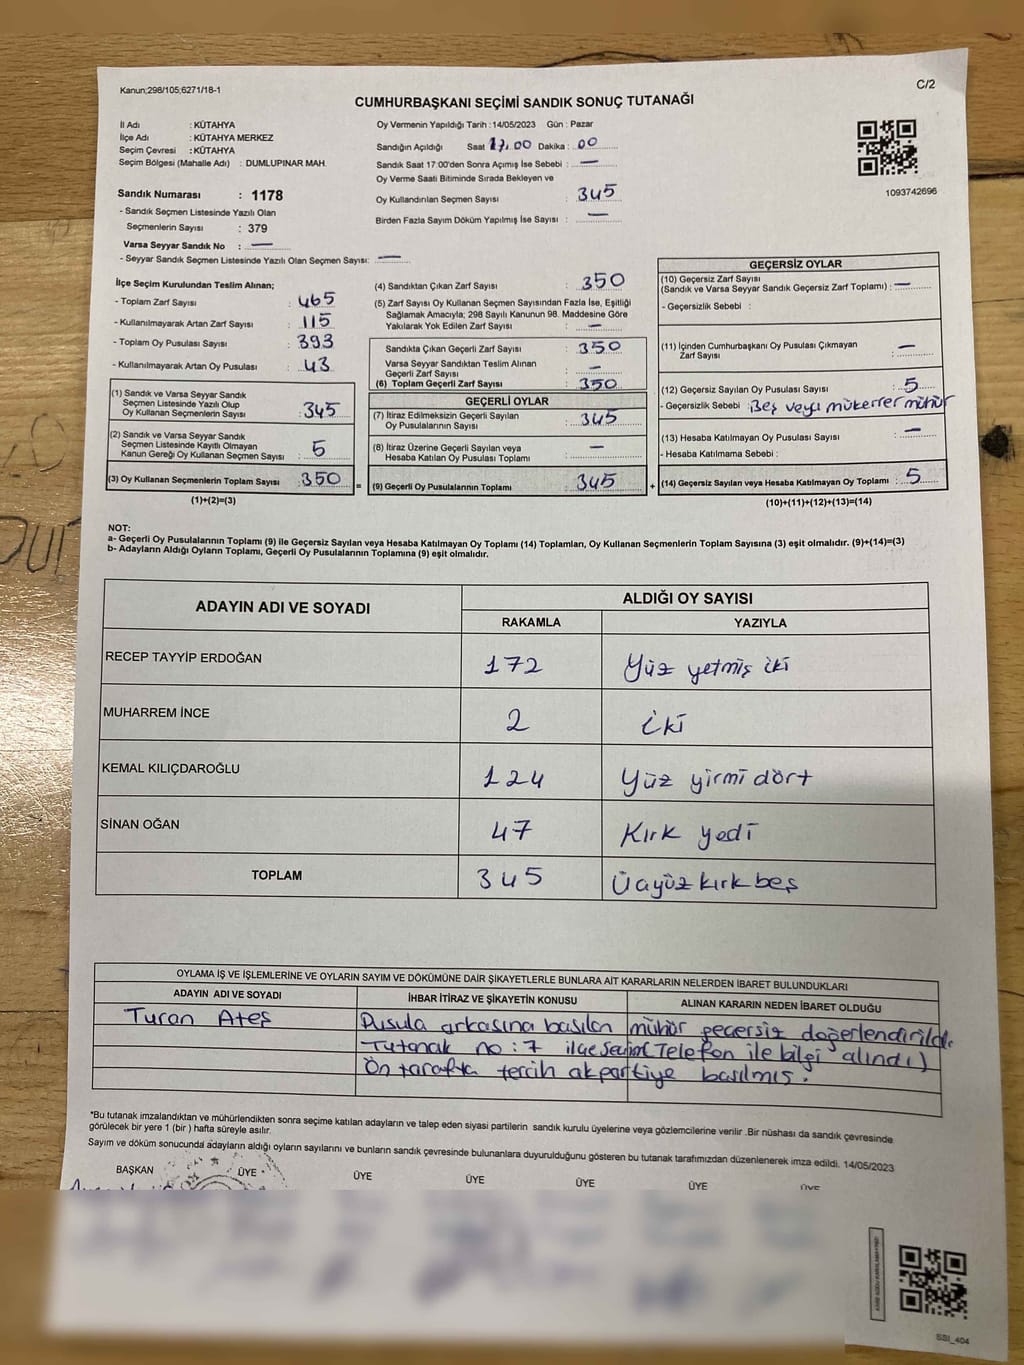 Kanun;298/105;6271/18-1
C/2
CUMHURBAŞKANI SEÇİMİ SANDIK SONUÇ TUTANAĞI
İl Adı : KÜTAHYA
İlçe Adı : KÜTAHYA MERKEZ
Seçim Çevresi : KÜTAHYA
Seçim Bölgesi (Mahalle Adı) : DUMLUPINAR MAH.
Sandık Numarası : 1178
- Sandık Seçmen Listesinde Yazılı Olan
Seçmenlerin Sayısı : 379
Varsa Seyyar Sandık No : —
- Seyyar Sandık Seçmen Listesinde Yazılı Olan Seçmen Sayısı: —
Oy Vermenin Yapıldığı Tarih : 14/05/2023 Gün : Pazar
Sandığın Açıldığı Saat 17.00 Dakika : 00
Sandık Saat 17:00'den Sonra Açımış İse Sebebi : —
Oy Verme Saati Bitiminde Sırada Bekleyen ve
Oy Kullandırılan Seçmen Sayısı : 345
Birden Fazla Sayım Döküm Yapılmış İse Sayısı : —
1093742696
İlçe Seçim Kurulundan Teslim Alınan;
- Toplam Zarf Sayısı : 465
- Kullanılmayarak Artan Zarf Sayısı : 115
- Toplam Oy Pusulası Sayısı : 393
- Kullanılmayarak Artan Oy Pusulası : 43
(1) Sandık ve Varsa Seyyar Sandık
Seçmen Listesinde Yazılı Olup
Oy Kullanan Seçmenlerin Sayısı : 345
(2) Sandık ve Varsa Seyyar Sandık
Seçmen Listesinde Kayıtlı Olmayan
Kanun Gereği Oy Kullanan Seçmen Sayısı : 5
(3) Oy Kullanan Seçmenlerin Toplam Sayısı : 350
(1)+(2)=(3)
(4) Sandıktan Çıkan Zarf Sayısı : 350
(5) Zarf Sayısı Oy Kullanan Seçmen Sayısından Fazla İse, Eşitliği
Sağlamak Amacıyla; 298 Sayılı Kanunun 98. Maddesine Göre
Yakılarak Yok Edilen Zarf Sayısı : —
Sandıkta Çıkan Geçerli Zarf Sayısı : 350
Varsa Seyyar Sandıktan Teslim Alınan
Geçerli Zarf Sayısı : —
(6) Toplam Geçerli Zarf Sayısı : 350
GEÇERLİ OYLAR
(7) İtiraz Edilmeksizin Geçerli Sayılan
Oy Pusulalarının Sayısı : 345
(8) İtiraz Üzerine Geçerli Sayılan veya
Hesaba Katılan Oy Pusulası Toplamı : —
= (9) Geçerli Oy Pusulalarının Toplamı : 345 +
GEÇERSİZ OYLAR
(10) Geçersiz Zarf Sayısı
(Sandık ve Varsa Seyyar Sandık Geçersiz Zarf Toplamı) : —
- Geçersizlik Sebebi :
(11) İçinden Cumhurbaşkanı Oy Pusulası Çıkmayan
Zarf Sayısı : —
(12) Geçersiz Sayılan Oy Pusulası Sayısı : 5
- Geçersizlik Sebebi : Beş veya mükerrer mühür
(13) Hesaba Katılmayan Oy Pusulası Sayısı : —
- Hesaba Katılmama Sebebi :
(14) Geçersiz Sayılan veya Hesaba Katılmayan Oy Toplamı : 5
(10)+(11)+(12)+(13)=(14)
NOT:
a- Geçerli Oy Pusulalarının Toplamı (9) ile Geçersiz Sayılan veya Hesaba Katılmayan Oy Toplamı (14) Toplamları, Oy Kullanan Seçmenlerin Toplam Sayısına (3) eşit olmalıdır. (9)+(14)=(3)
b- Adayların Aldığı Oyların Toplamı, Geçerli Oy Pusulalarının Toplamına (9) eşit olmalıdır.
ADAYIN ADI VE SOYADI ALDIĞI OY SAYISI
RAKAMLA YAZIYLA
RECEP TAYYİP ERDOĞAN 172 Yüz yetmiş iki
MUHARREM İNCE 2 iki
KEMAL KILIÇDAROĞLU 124 Yüz yirmi dört
SİNAN OĞAN 47 Kırk yedi
TOPLAM 345 Üçyüz kırk beş
OYLAMA İŞ VE İŞLEMLERİNE VE OYLARIN SAYIM VE DÖKÜMÜNE DAİR ŞİKAYETLERLE BUNLARA AİT KARARLARIN NELERDEN İBARET BULUNDUKLARI
ADAYIN ADI VE SOYADI İHBAR İTİRAZ VE ŞİKAYETİN KONUSU ALINAN KARARIN NEDEN İBARET OLDUĞU
Turan Ateş Pusula arkasına basılan mühür geçersiz değerlendirildi.
Tutanak no : 7 ilçe seçim (Telefon ile bilgi alındı)
Ön tarafta tercih akpartiye basılmış.
*Bu tutanak imzalandıktan ve mühürlendikten sonra seçime katılan adayların ve talep eden siyasi partilerin sandık kurulu üyelerine veya gözlemcilerine verilir .Bir nüshası da sandık çevresinde
görülecek bir yere 1 (bir ) hafta süreyle asılır.
Sayım ve döküm sonucunda adayların aldığı oyların sayılarını ve bunların sandık çevresinde bulunanlara duyurulduğunu gösteren bu tutanak tarafımızdan düzenlenerek imza edildi. 14/05/2023
BAŞKAN ÜYE ÜYE ÜYE ÜYE ÜYE ÜYE
SSI_404